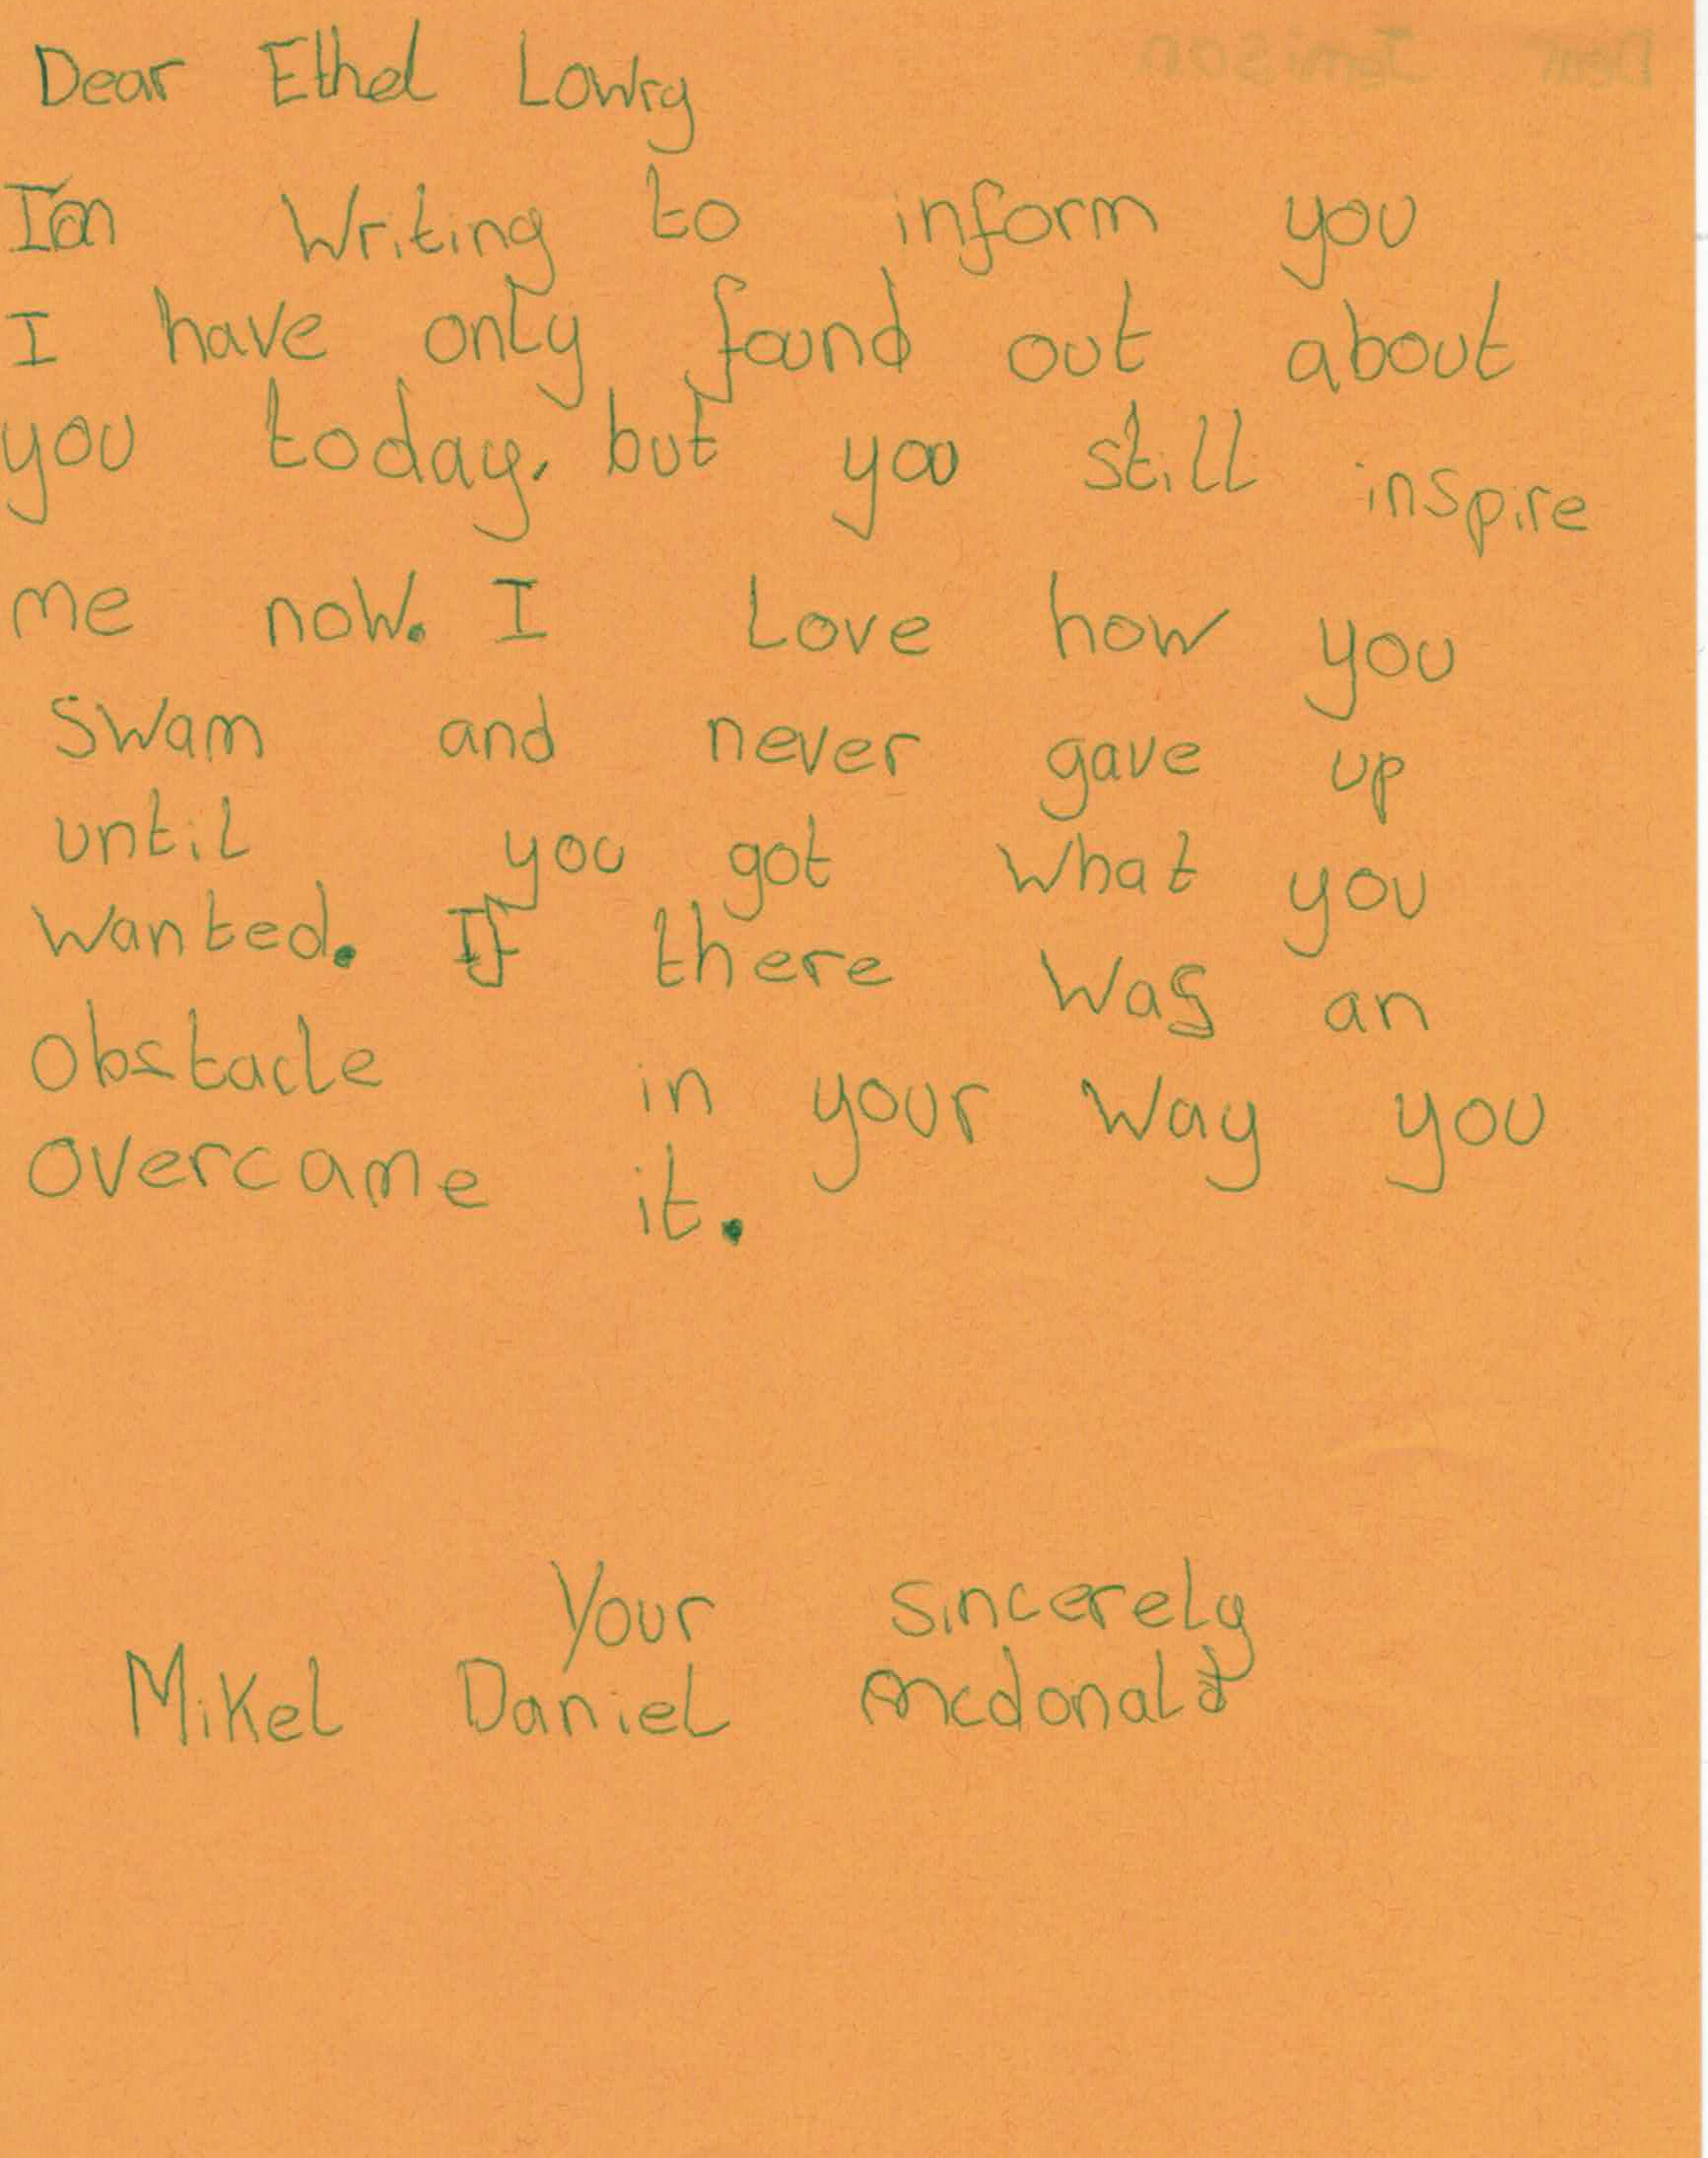 Dear Ethel Lowry
I'm Writing to inform you
I have only found out about
you today, but you still inspire
me now. I Love how you
Swam and never gave up
until you got what you
wanted. If there was an
obstacle in your way you
overcame it.
Your sincerely
Mikel Daniel Mcdonald
Dear Jemison